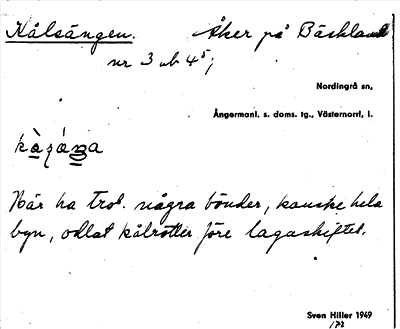 Kålsängen. Åker på Bäckland
nr 3 ub 4⁵;
Nordingrå sn,
Ångermanl. s. doms. tg., Västernorrl, l.
Här ha trol. några bönder, kanske hela
byn, odlat kålrötter före lagaskiftet.
Sven Hiller 1949